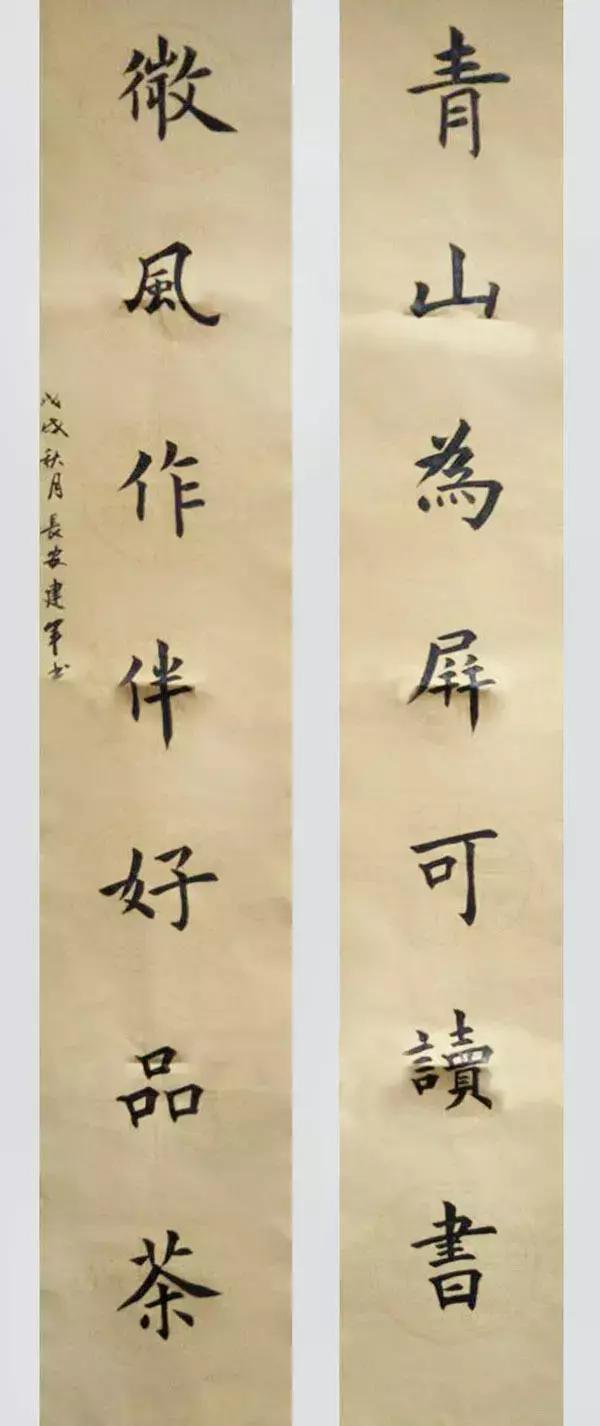 青山為屏可讀書
微風作伴好品茶
戊戌秋月長安建軍书